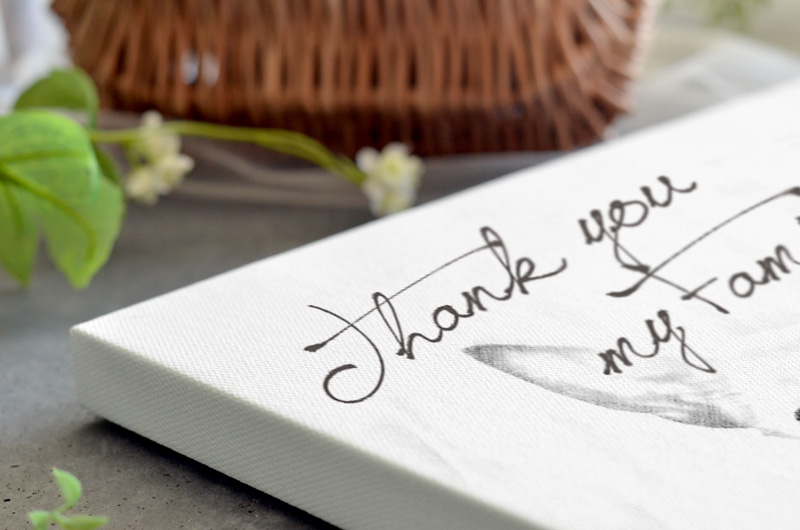 Thank you
my Fam